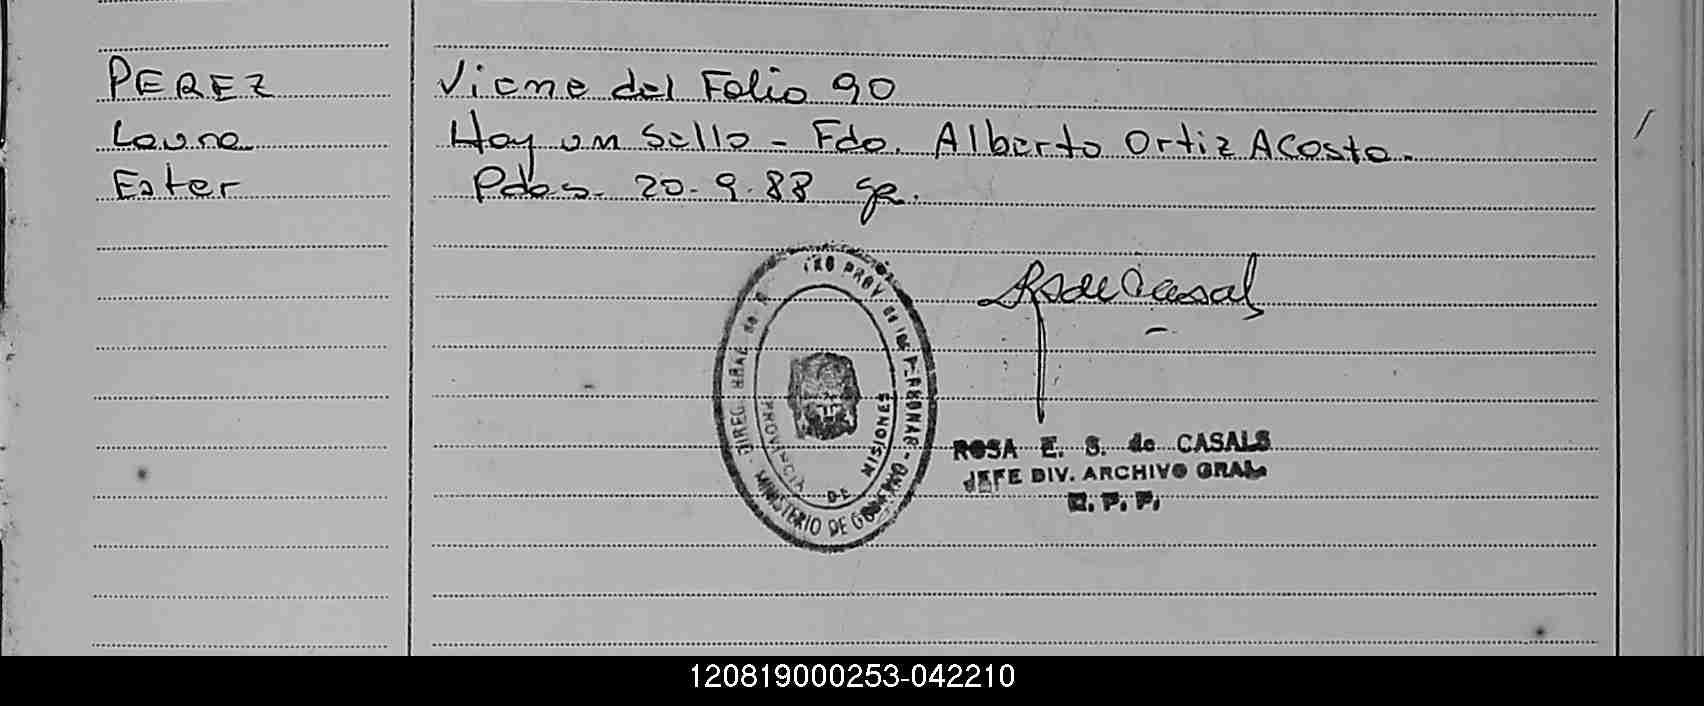 PEREZ
Laura
Ester
Viene del Folio 90
Hay un Sello - Fdo. Alberto Ortiz Acosta.
Pdas. 20-9-88
ROSA E. S. de CASALS
JEFE DIV. ARCHIVO GRAL
R. P. P.
DIREC. GRAL de
PROV. de las PERSONAS - MINISTERIO DE GOBIERNO
PROVINCIA DE MISIONES
120819000253-042210